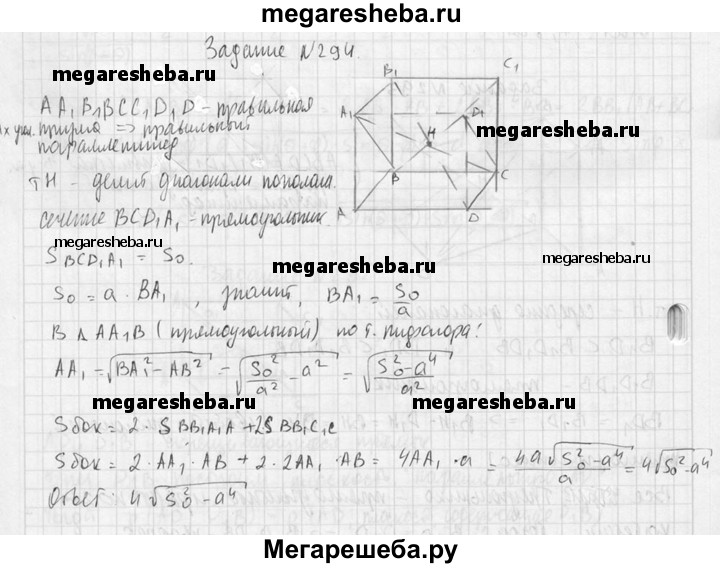 megaresheba.ru
Задание №294.
megaresheba.ru
AA₁B₁BCC₁D₁D - правильная
призма => правильный
параллепипед
тН - делит диагонали пополам.
сечение BCD₁A₁ - прямоугольник.
B₁
C₁
A₁
D₁
H
B
C
A
D
megaresheba.ru
megaresheba.ru
S BCD₁A₁ = S₀.
megaresheba.ru
megaresheba.ru
S₀ = a · BA₁ , значит, BA₁ = S₀/a
В Δ AA₁B (прямоугольный) по т. Пифагора:
AA₁ = √(BA₁² - AB²) = √(S₀²/a² - a²) = √((S₀² - a⁴)/a²)
megaresheba.ru
megaresheba.ru
Sбок = 2 · S BB₁A₁A + 2S BB₁C₁C
Sбок = 2 · AA₁ · AB + 2 · 2AA₁ · AB = 4AA₁ · a = 4a√(S₀² - a⁴)/a = 4√(S₀² - a⁴)
Ответ 4√(S₀² - a⁴)
megaresheba.ru
Мегарешеба.ру